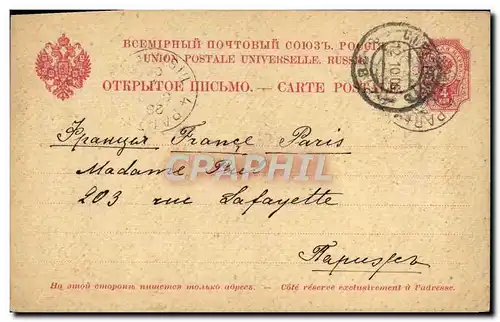 ВСЕМІРНЫЙ ПОЧТОВЫЙ СОЮЗЪ. РОССІЯ
UNION POSTALE UNIVERSELLE. RUSSIE
ОТКРЫТОЕ ПИСЬМО. — CARTE POSTALE
Франція France Paris
Madame
203 rue Lafayette
Парижъ
На этой сторонѣ пишется только адресъ. — Côté réservé exclusivement à l'adresse.
CPARAMA.COM